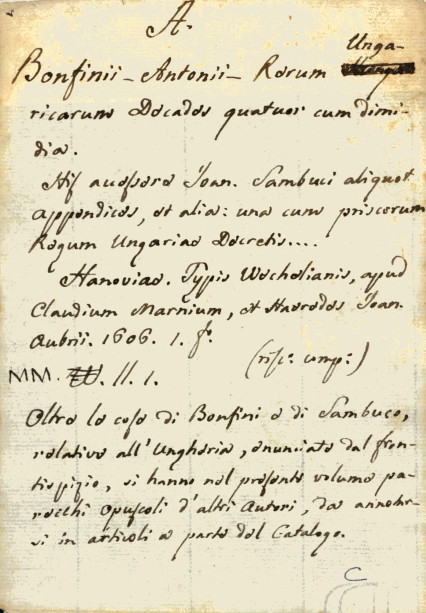 A.
Unga-
Bonfinii - Antonii - Rerum
ricarum Decades quatuor cum dimi-
dia.
His accessere Joan. Sambuci aliquot
appendices, et alia: una cum priscorum
Regum Ungariae Decretis....
Hanoviae. Typis Wechelianis, apud
Claudium Marnium, et Haeredes Joan.
Aubrii. 1606. 1. fo.
(risc.e imp.e)
MM. II. 1.
Oltre le cose di Bonfini e di Sambuco,
relative all'Ungheria, enunciate dal fron-
tispizio, si hanno nel presente volume pa-
recchi opuscoli d'altri Autori, da annotar-
si in articoli a parte del Catalogo.
C